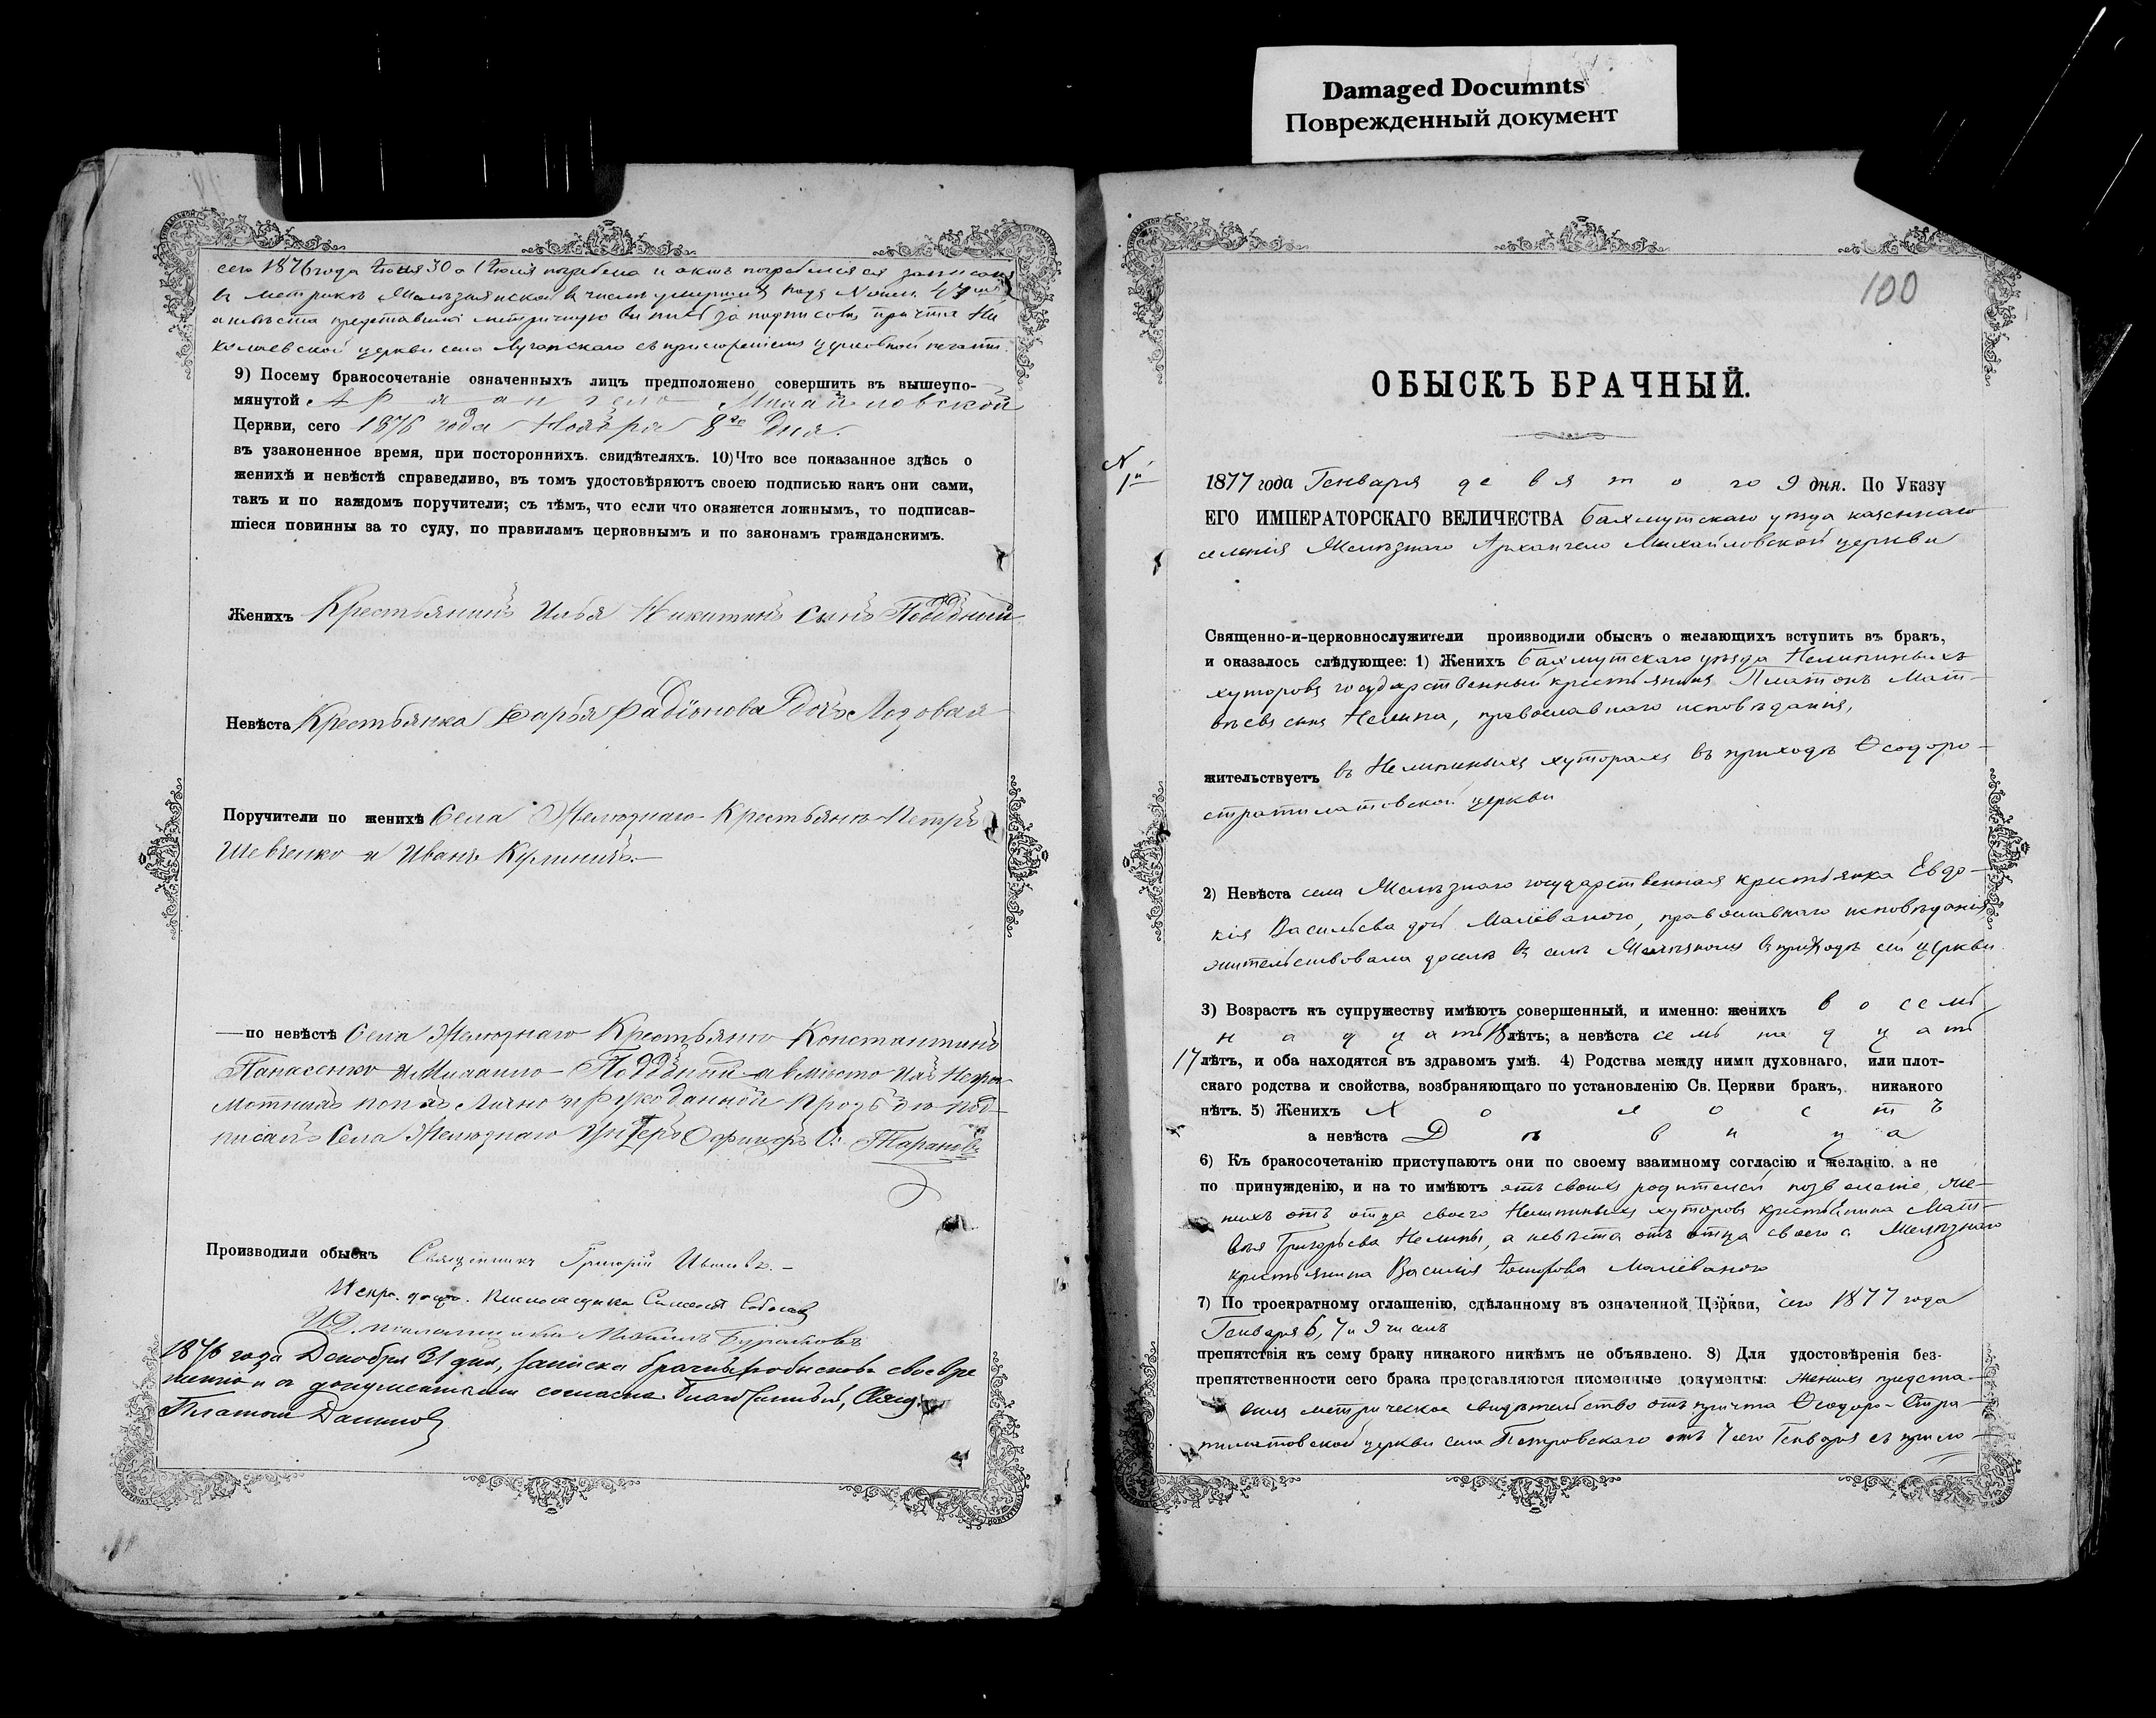 Damaged Documnts
Поврежденный документ
сего 1876 года Іюня 30 а 1 Іюля погребена и актъ погребенія ея записанъ
въ метрикѣ Желѣзнянской въ числѣ умершихъ подъ №омъ
а невѣста представила метричную за подписомъ причта Ни
колаевской церкви села Луганскаго съ приложеніемъ церковной печати.
9) Посему бракосочетаніе означенныхъ лицъ предположено совершить въ вышеупо-
мянутой Архангело Михайловской
Церкви, сего 1876 года Ноября 8го Дня.
въ узаконенное время, при постороннихъ свидѣтеляхъ. 10) Что все показанное здѣсь о
женихѣ и невѣстѣ справедливо, въ томъ удостовѣряютъ своею подписью какъ они сами,
такъ и по каждомъ поручители; съ тѣмъ, что если что окажется ложнымъ, то подписав-
шіеся повинны за то суду, по правиламъ церковнымъ и по законамъ гражданскимъ.
Женихъ Крестьянинъ Илья Никитинъ Сынъ Поддубный
Невѣста Крестьянка Дарья Радіонова Дочь Лозовая
Поручители по женихѣ Села Желѣзнаго Крестьяне Петръ
Шевченко и Иванъ
— по невѣстѣ Села Желѣзнаго Крестьяне Константинъ
Панасенко и Михаилъ Поддубный а вмѣсто ихъ Негра
мотныхъ по ихъ Личной и Рукоданной Прозьбѣ под-
писалъ Села Желѣзнаго Унтеръ Офицеръ Тарановъ
Производили обыскъ Священникъ Григорій
Испр. долж. Псаломщика Симеонъ
И.Д. псаломщика Михаилъ
1876 года Декабря 31 дня, записка брачныхъ обысковъ своевре
менна и съ документами согласна. Благочинный, Свящ.
Платонъ Даниловъ
100
ОБЫСКЪ БРАЧНЫЙ.
№
1й
1877 года Генваря девятого 9 дня. По Указу
ЕГО ИМПЕРАТОРСКАГО ВЕЛИЧЕСТВА Бахмутскаго уѣзда казеннаго
селенія Желѣзнаго Архангело Михайловской церкви
Священно-и-церковнослужители производили обыскъ о желающихъ вступить въ бракъ,
и оказалось слѣдующее: 1) Женихъ Бахмутскаго уѣзда Нелипиныхъ
хуторовъ государственный крестьянинъ Платонъ Мат-
вѣевъ сынъ Нелипа, православнаго исповѣданія,
жительствуетъ въ Нелипиныхъ хуторахъ въ приходѣ Ѳеодоро-
стратилатовской церкви
2) Невѣста села Желѣзнаго государственная крестьянка Евдо-
кія Васильева дочь Малёваного, православнаго исповѣданія,
жительствовала доселѣ въ селѣ Желѣзномъ въ приходѣ сей церкви.
3) Возрастъ къ супружеству имѣютъ совершенный, и именно: женихъ восемь
надцать 18 лѣтъ; а невѣста семьнадцать
17 лѣтъ, и оба находятся въ здравомъ умѣ. 4) Родства между ними духовнаго, или плот-
скаго родства и свойства, возбраняющаго по установленію Св. Церкви бракъ, никакого
нѣтъ. 5) Женихъ Холостъ
а невѣста Дѣвица
6) Къ бракосочетанію приступаютъ они по своему взаимному согласію и желанію, а не
по принужденію, и на то имѣютъ отъ своихъ родителей позволеніе, же-
нихъ отъ отца своего Нелипиныхъ хуторовъ крестьянина Мат-
вѣя Григорьева Нелипы, а невѣста отъ отца своего с. Желѣзнаго
крестьянина Василія Малёваного
7) По троекратному оглашенію, сдѣланному въ означенной Церкви, сего 1877 года
Генваря 6, 7 и 9 чиселъ
препятствія къ сему браку никакого никѣмъ не объявлено. 8) Для удостовѣренія без-
препятственности сего брака представляются писменные документы: женихъ предста-
вилъ метрическое свидѣтельство отъ причта Ѳеодоро-Стра-
тилатовской церкви села Петровскаго отъ 7 сего Генваря съ прило-